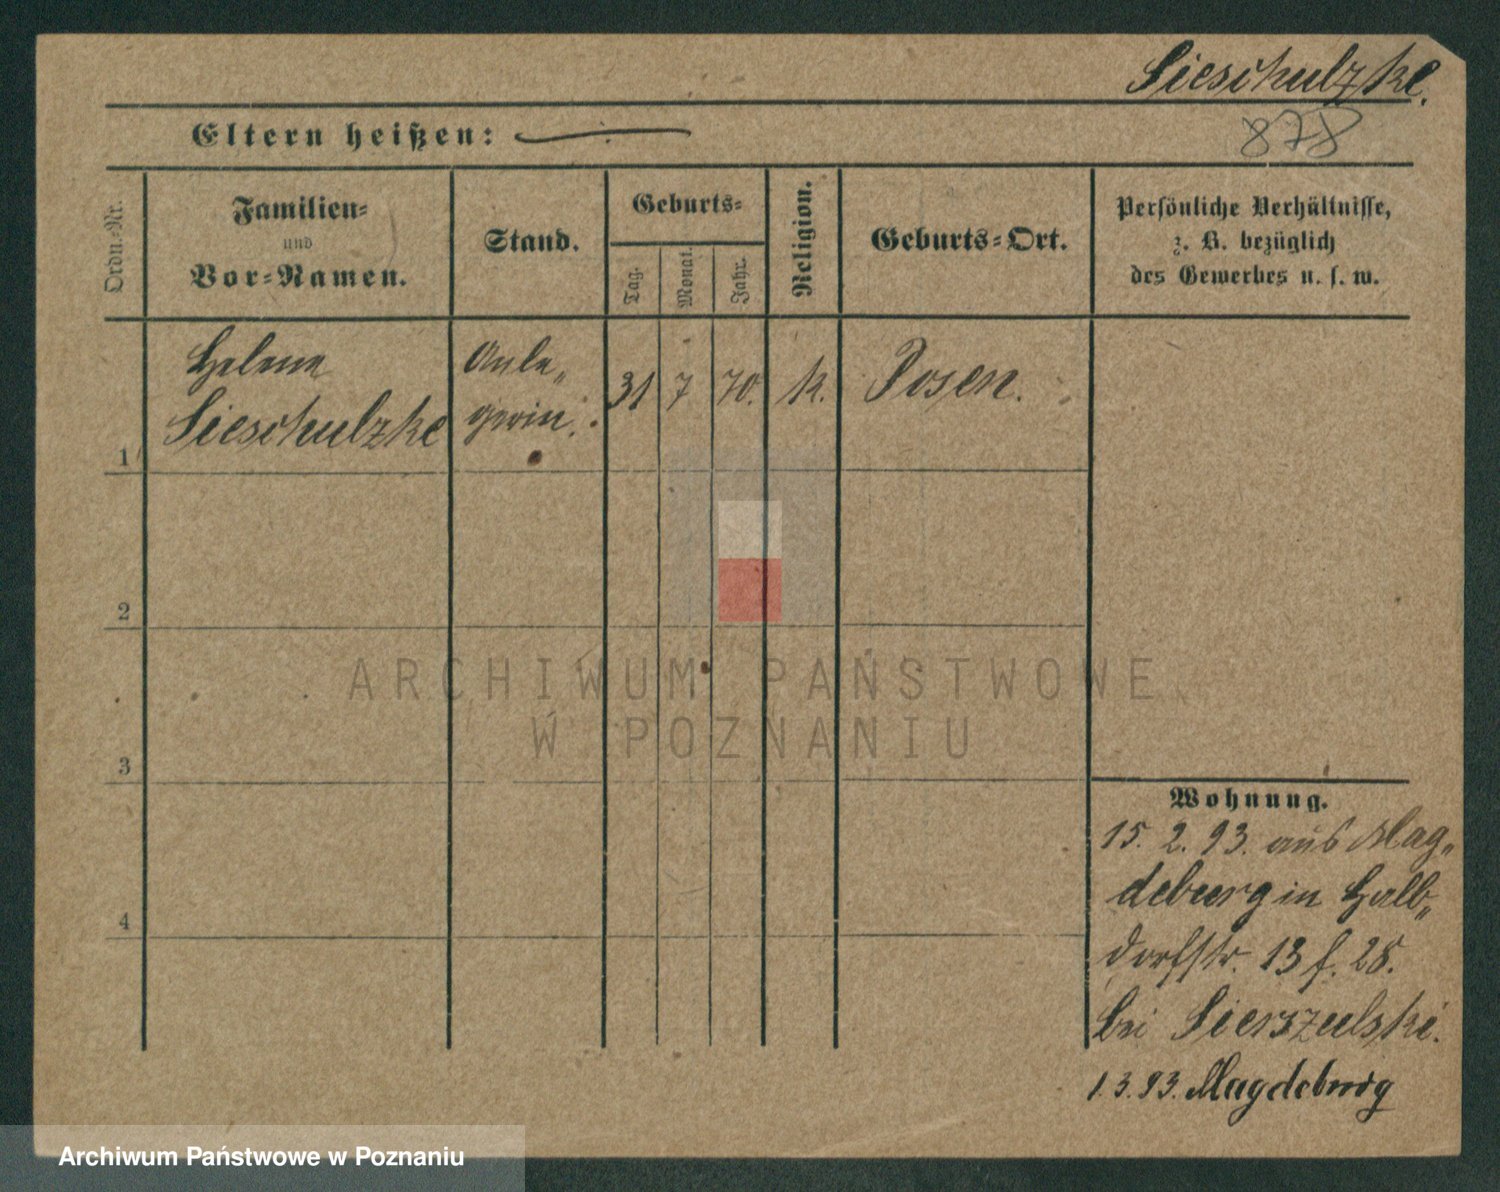 Sieschulzke.
878
Eltern heißen:
Ordn.-Nr.
Familien-
und
Vor-Namen.
Stand.
Geburts-
Tag.
Monat.
Jahr.
Religion.
Geburts-Ort.
Persönliche Verhältnisse,
z. B. bezüglich
des Gewerbes u. s. w.
1
Helene
Sieschulzke
Anle„
gerin.
31
7
70.
k.
Posen.
2
3
4
Wohnung.
15. 2. 93. aus Mag„
deburg in Halb„
dorfstr. 13 f. 28.
bei Sierszulski.
1. 3. 93. Magdeburg
ARCHIWUM PAŃSTWOWE
W POZNANIU
Archiwum Państwowe w Poznaniu